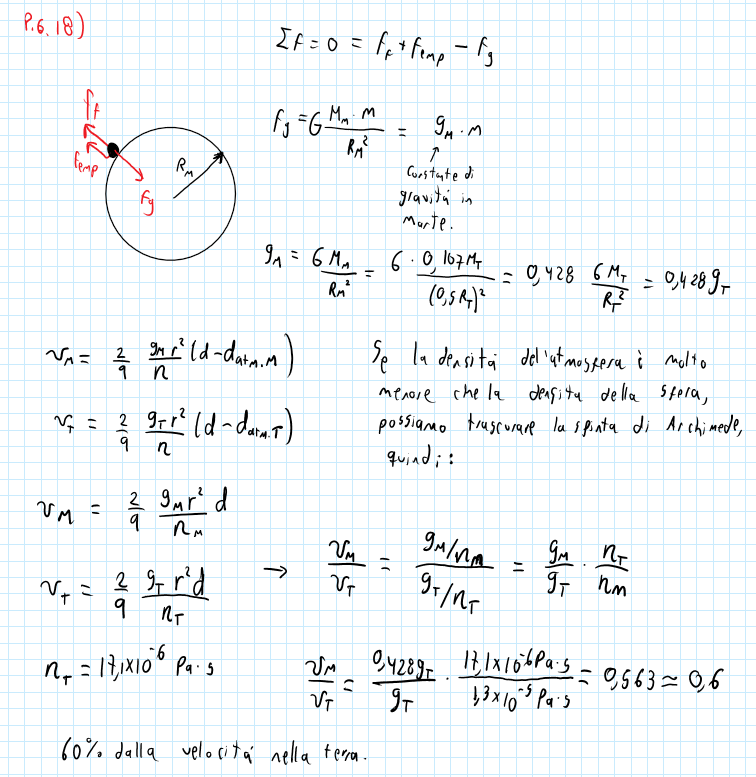 P.6.18)
Σf = 0 = f_f + f_emp − f_g
f_f
f_emp
f_g
R_M
f_g = G M_M · m / R_M² = g_M · m
Costate di
gravitá in
marte.
g_M = G M_M / R_M² = G · 0,107M_T / (0,5R_T)² = 0,428 G M_T / R_T² = 0,428 g_T
v_M = 2/9 g_M r²/n (d − d_atm.M)
Se la densitá dell'atmosfera è molto
menore che la densita della sfera,
possiamo trascurare la spinta di Archimede,
quindi:
v_T = 2/9 g_T r²/n (d − d_atm.T)
v_M = 2/9 g_M r²/n_M d
v_T = 2/9 g_T r² d/n_T → v_M/v_T = (g_M/n_M)/(g_T/n_T) = g_M/g_T · n_T/n_M
n_T = 17,1×10⁻⁶ Pa·s
v_M/v_T = 0,428g_T/g_T · 17,1×10⁻⁶Pa·s/1,3×10⁻⁵Pa·s = 0,563 ≃ 0,6
60% dalla velocitá nella terra.